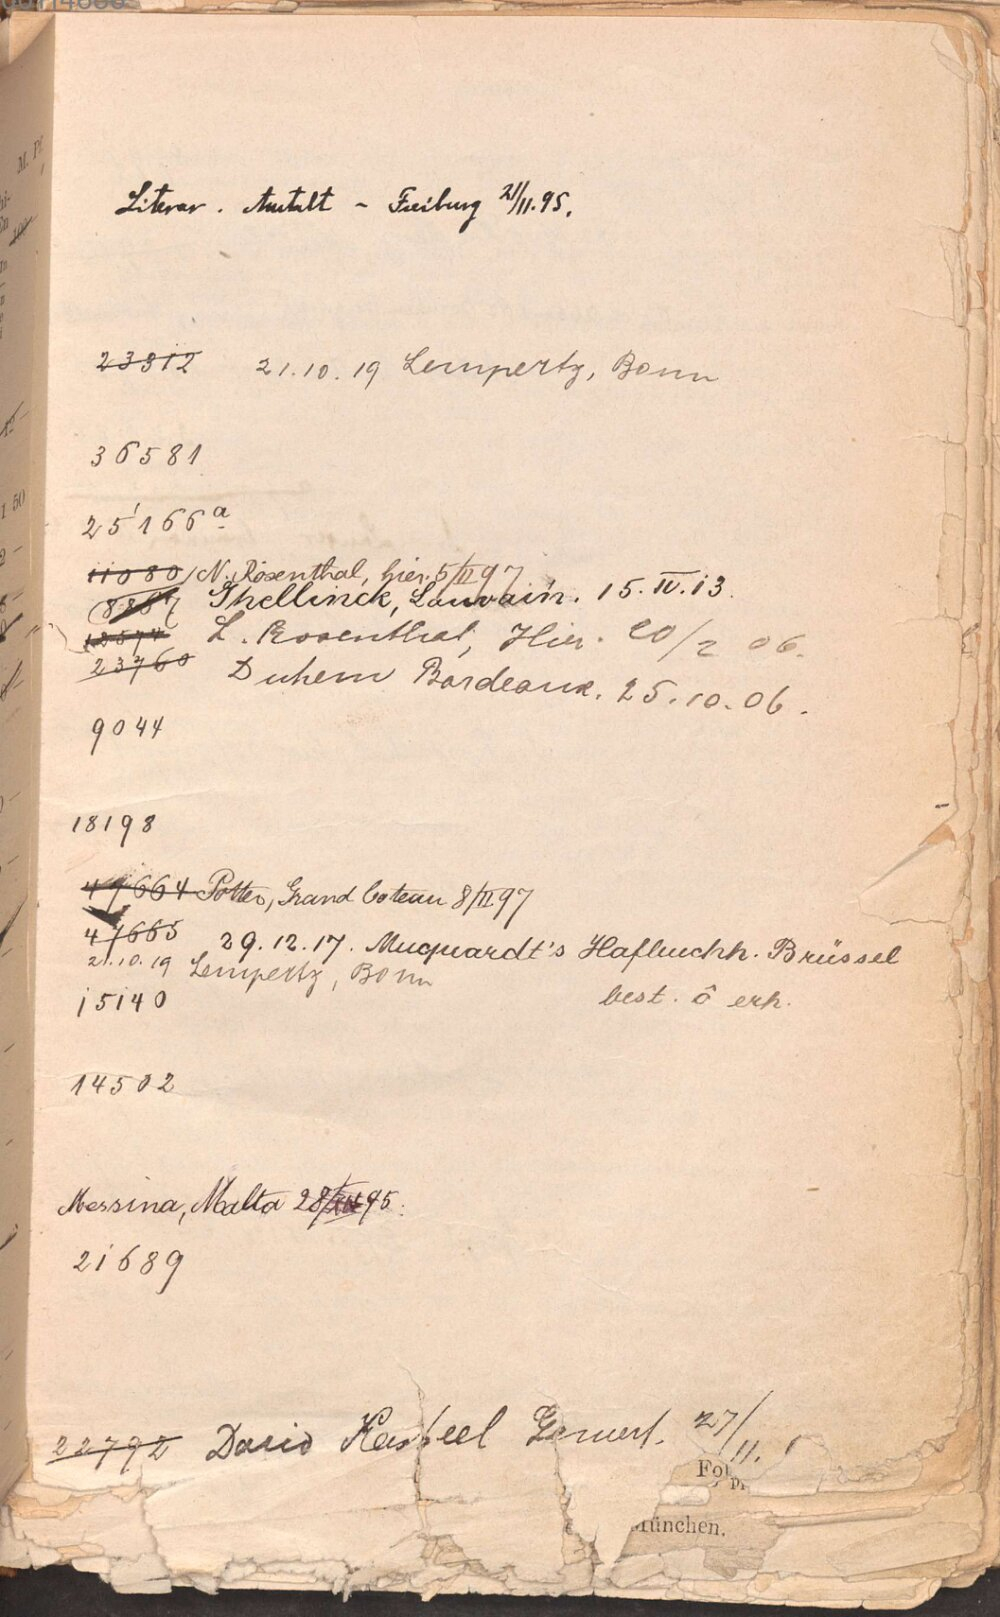 Literar. Anstalt - Freiburg 21/11.95.
23312 21.10.19 Lempertz, Bonn
36581
25166a
11080 N. Rosenthal, hier. 5/II 97
8867 Ghellinck, Louvain. 15.IV.13.
12574 L. Rosenthal, Hier. 20/2 06.
23760 Duhem Bordeaux. 25.10.06.
9044
18198
47664 Potter, Grand Coteau 8/II 97
47665 29.12.17. Muquardt's Hofbuchh. Brüssel
21.10.19 Lempertz, Bonn
15140 best. ô erh.
14502
Messina, Malta 28/ 95.
21689
22792 David Gemert. 27/11.
München.